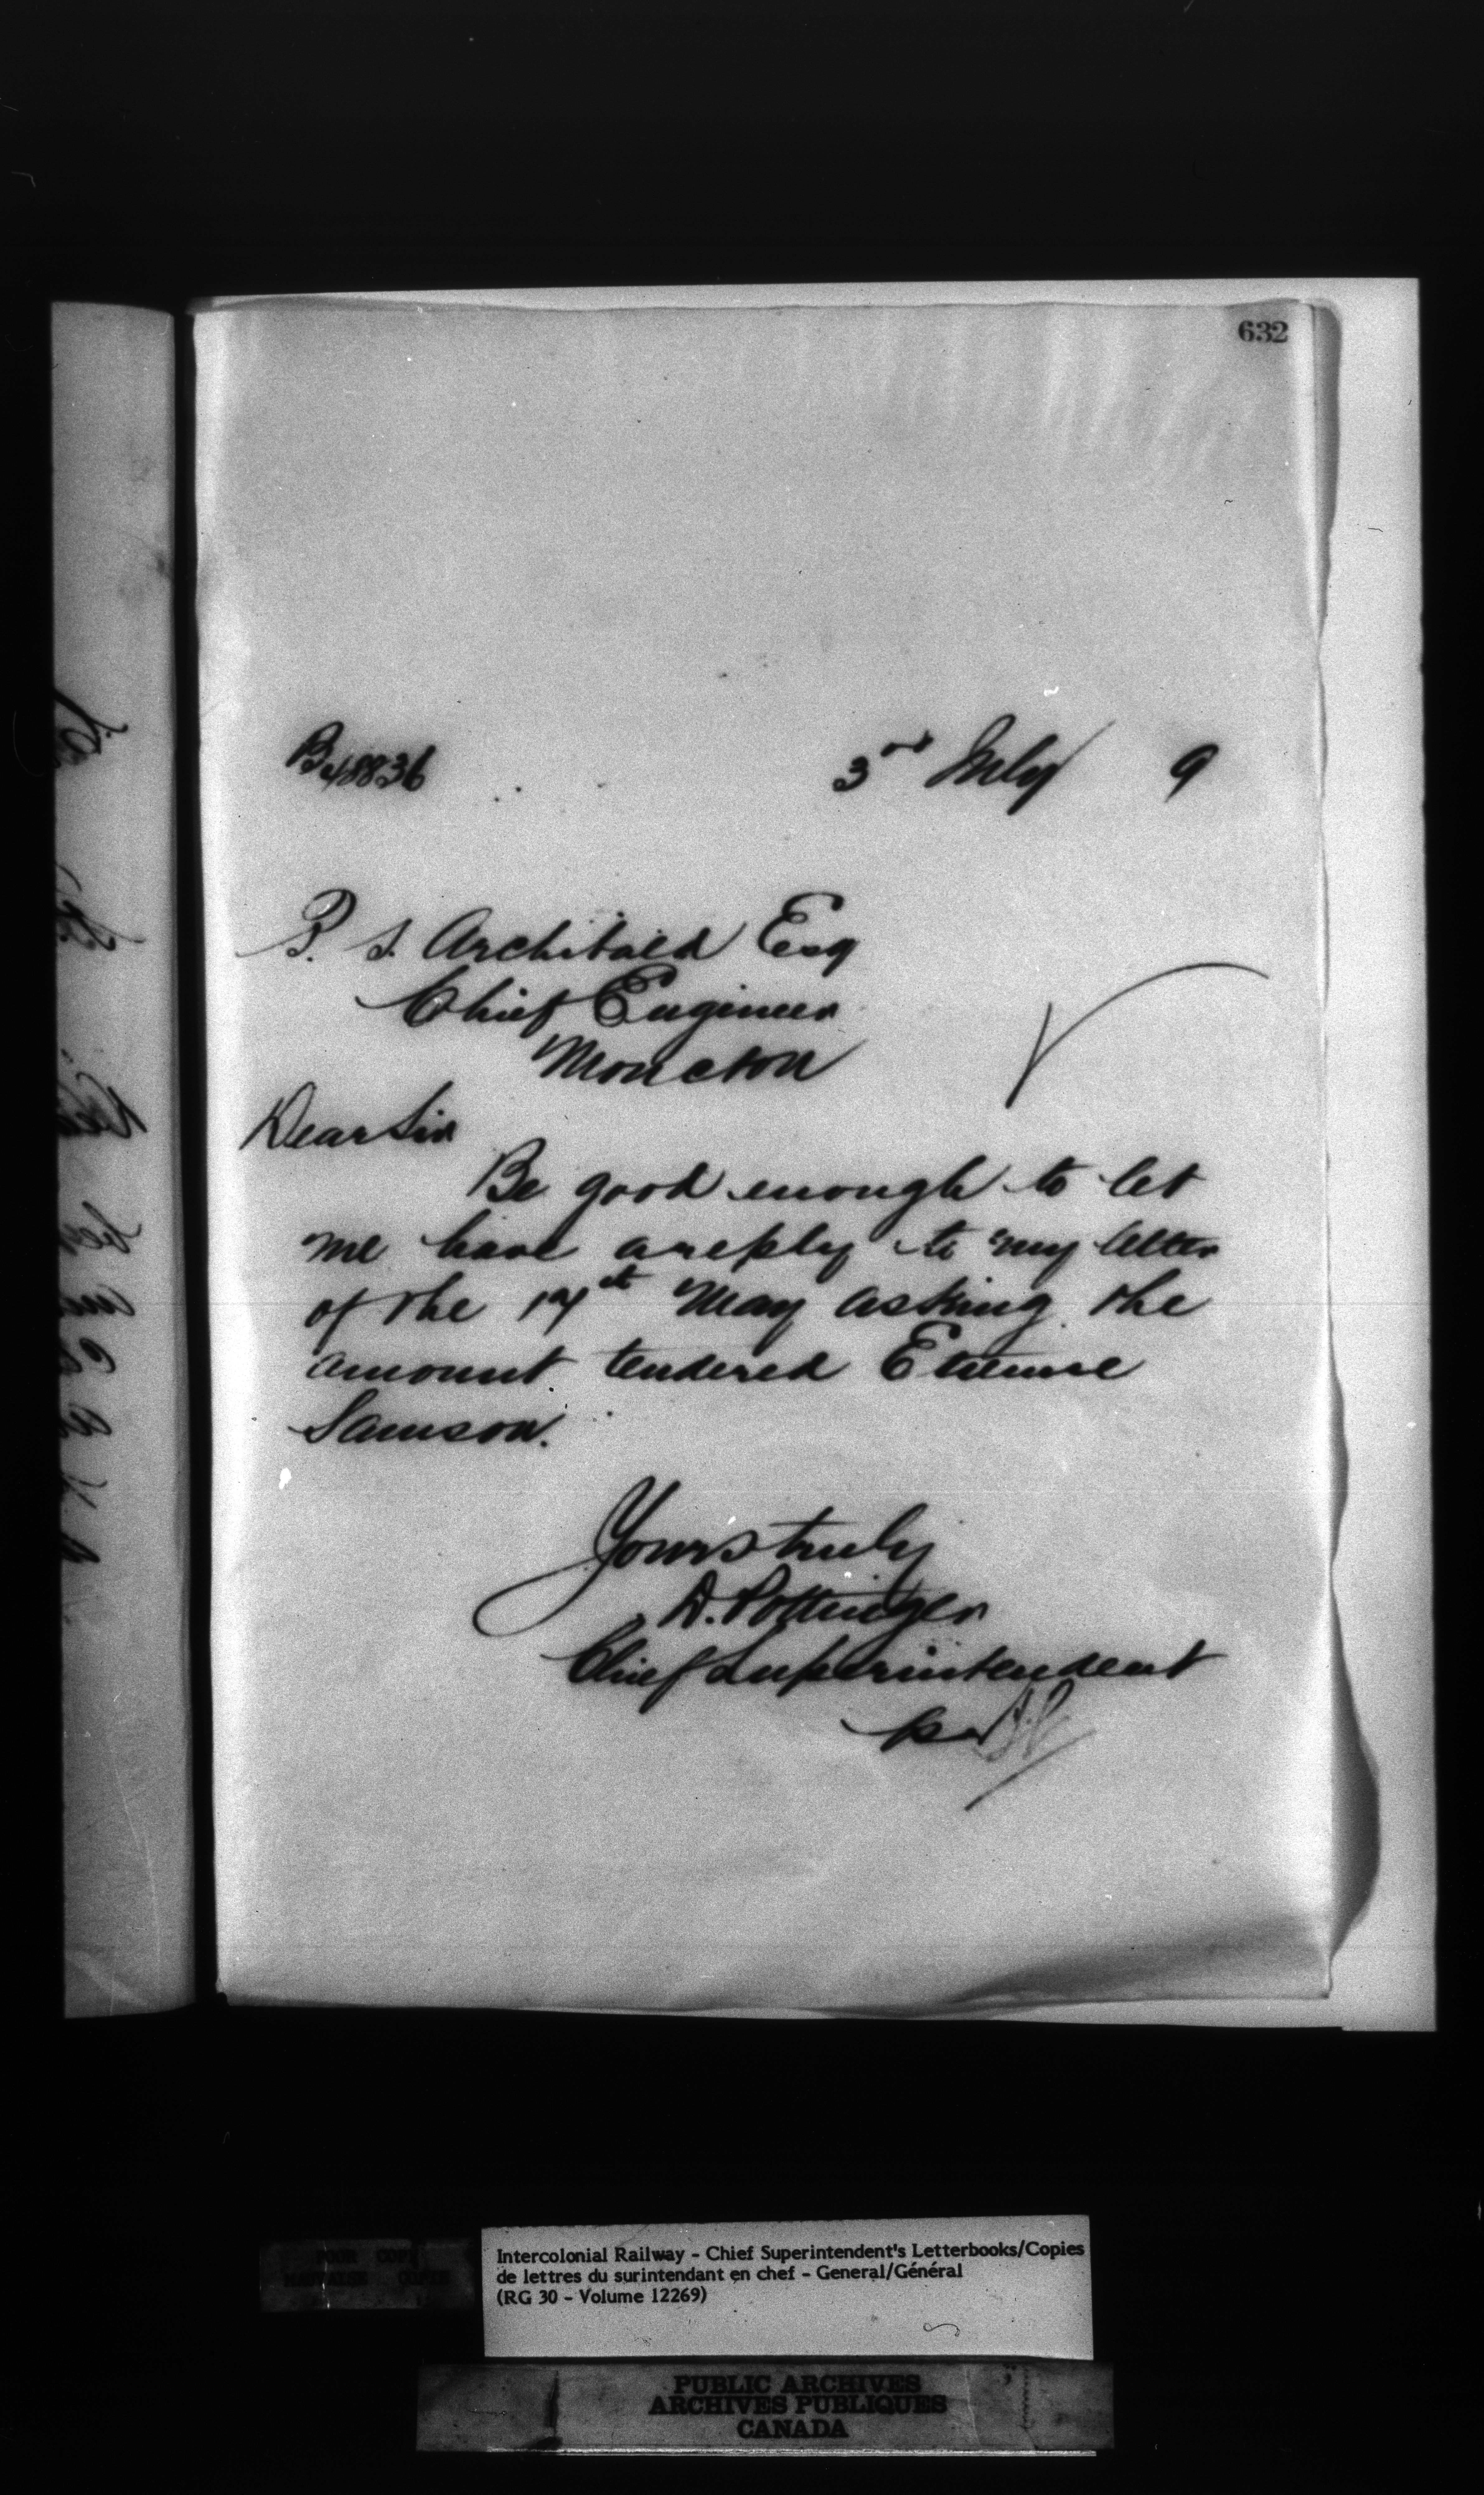 632
3rd July 9
P. S. Archibald Esq
Chief Engineer
Moncton
Dear Sir
Be good enough to let
me have a reply to my letter
of the May asking the
amount tendered Etienne
Samson.
Yours truly
D. Pottinger
Chief Superintendent
per
POOR COPY
MAUVAISE COPIE
Intercolonial Railway - Chief Superintendent's Letterbooks/Copies
de lettres du surintendant en chef - General/Général
(RG 30 - Volume 12269)
PUBLIC ARCHIVES
ARCHIVES PUBLIQUES
CANADA